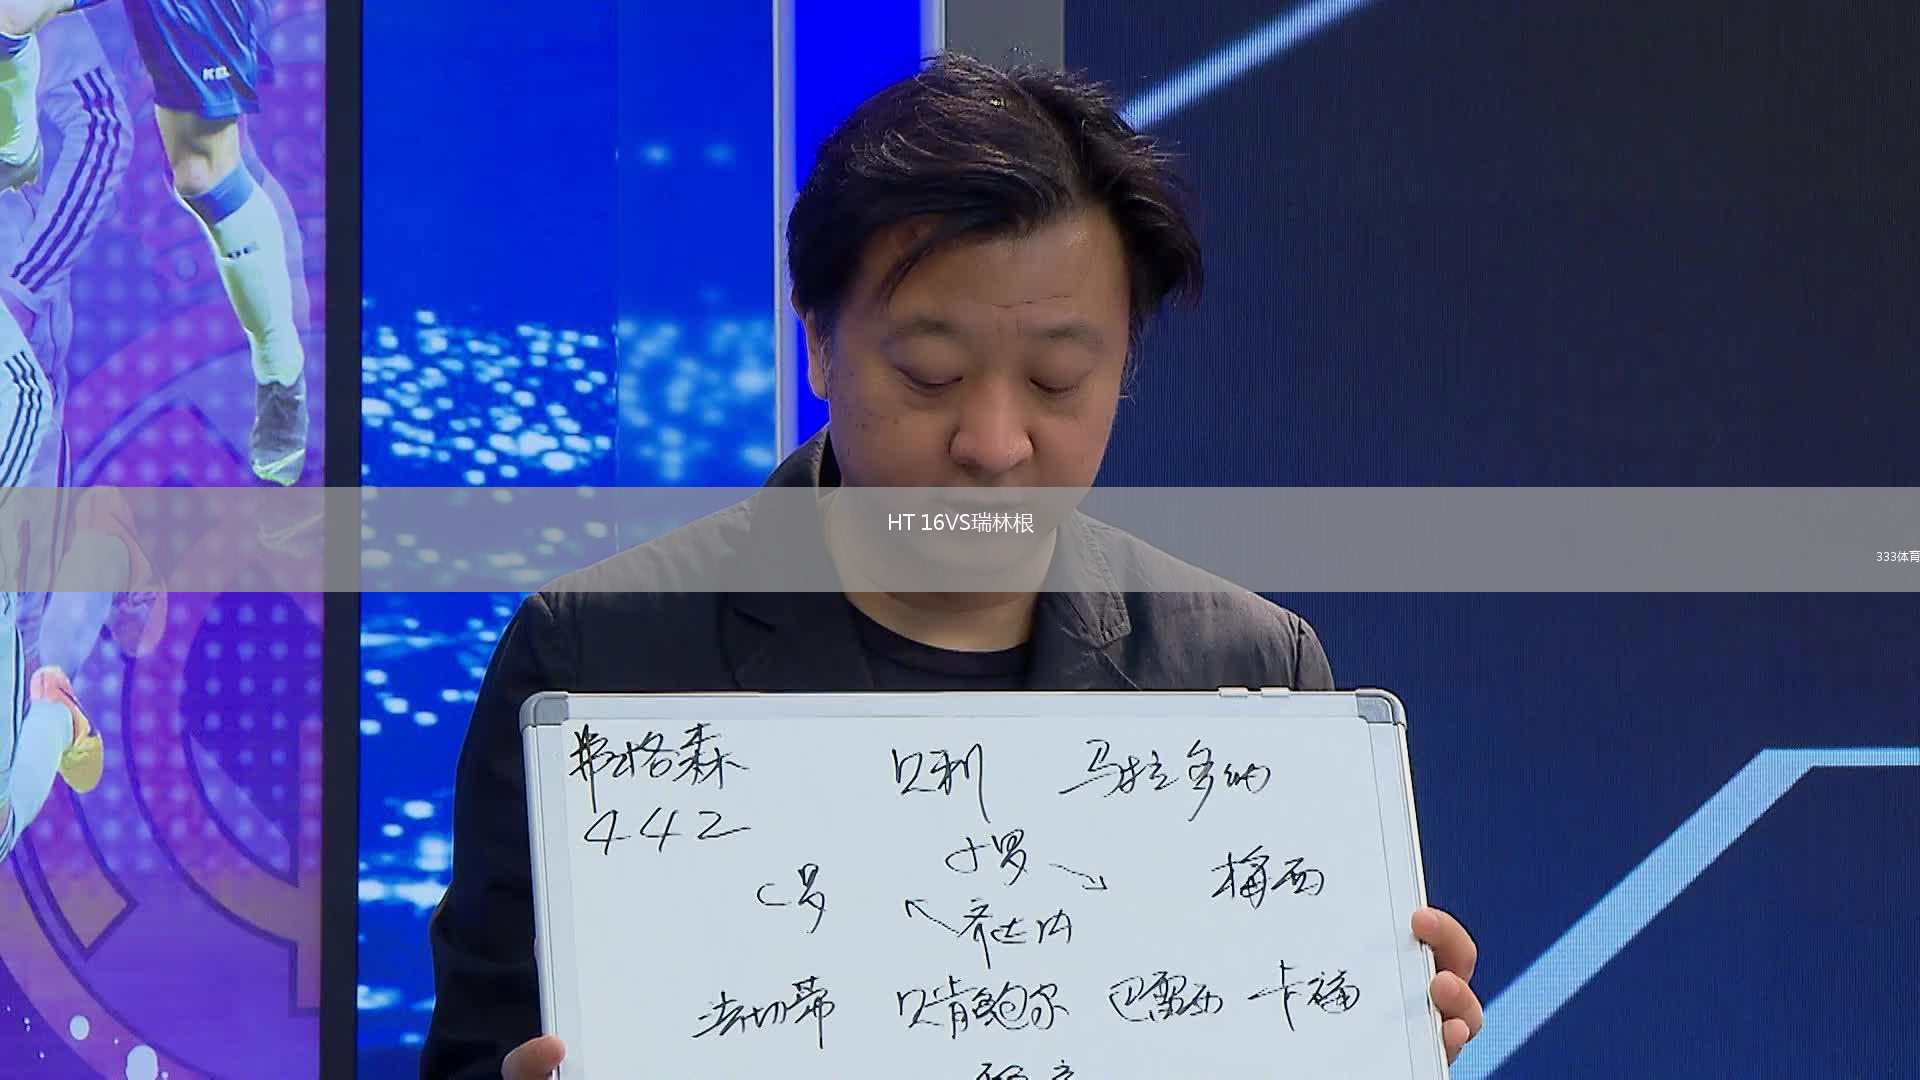 HT 16VS瑞林根
333体育
弗格森 贝利 马拉多纳
442
小罗
C罗 梅西
齐达内
法切蒂 贝肯鲍尔 巴雷西 卡福